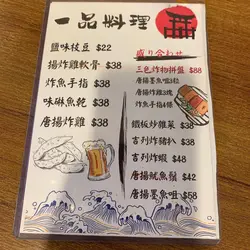 一品料理
鹽味枝豆 $22
揚炸雞軟骨 $38
炸魚手指 $38
味琳魚乾 $38
唐揚炸雞 $38
盛り合わせ
三色炸物拼盤 $88
唐揚墨魚咀3粒
唐揚炸雞3塊
炸魚手指4條
鐵板炒雜菜 $38
吉列炸豬扒 $38
吉列炸蝦 $48
唐揚魷魚鬚 $42
唐揚墨魚咀 $58